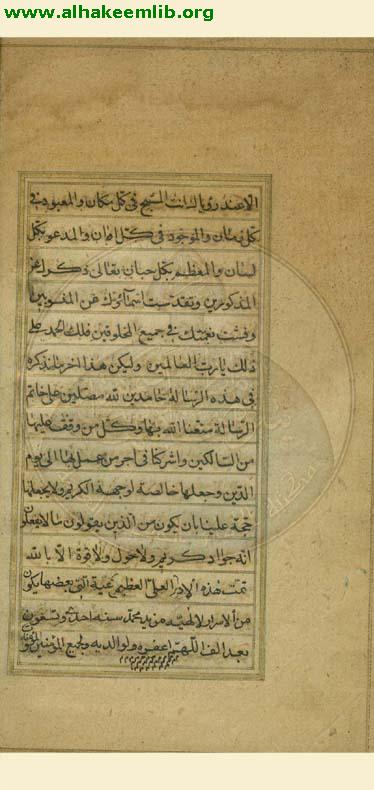 www.alhakeemlib.org
الا عند رؤياك انت المسبح في كل مكان والمعبود في
كل زمان والموجود في كل اوان والمدعو بكل
لسان والمعظم بكل جنان تعالى ذكرك عن
المذكورين وتقدست اسماؤك عن المنسوبين
وفشت نعمتك في جميع المخلوقين فلك الحمد على
ذلك يا رب العالمين وليكن هذا اخر ما نذكره
في هذه الرسالة حامدين لله مصلين على خاتم
الرسالة متعنا الله بها وكل من وقف عليها
من السالكين واشركنا في اجر من عمل بها الى يوم
الدين وجعلها خالصة لوجهه الكريم ولا يجعلها
حجة علينا بان يكون من الذين يقولون ما لا يفعلون
انه جواد كريم ولا حول ولا قوة الا بالله
العلي العظيم تمت هذه
من الاسرار الالهية سنه احدى وتسعون
بعد الف اللهم اغفر له ولوالديه ولجميع المؤمنين